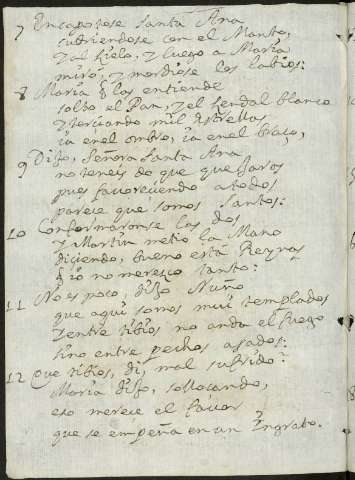 7 Encapotose Santa Ana
cubriendose con el Manto,
y al cielo, y luego a Maria
miró, y mordiose los labios:
8 Maria q̃ los entiende
soltò el Pan, y el sendal blanco
y terciando mil Estrellas
ia en el ombro, ia en el braço,
9 Dijo, Señora Santa Ana
no teneis de que quejaros
pues favoreciendo a todos
parece que somos Santos:
10 Conformaronse los dos
y Martin metio la Mano
diciendo, bueno está Reynas
q̃ io no meresco tanto:
11 No es poco, dijo Nuño
que aqui somos mui templados
y entre tibios no anda el fuego
sino entre pechos asados:
12 Que tibios, di, mal sufrido?
Maria dijo, sollocando,
eso merece el favor
que se empeña en un Ingrato.